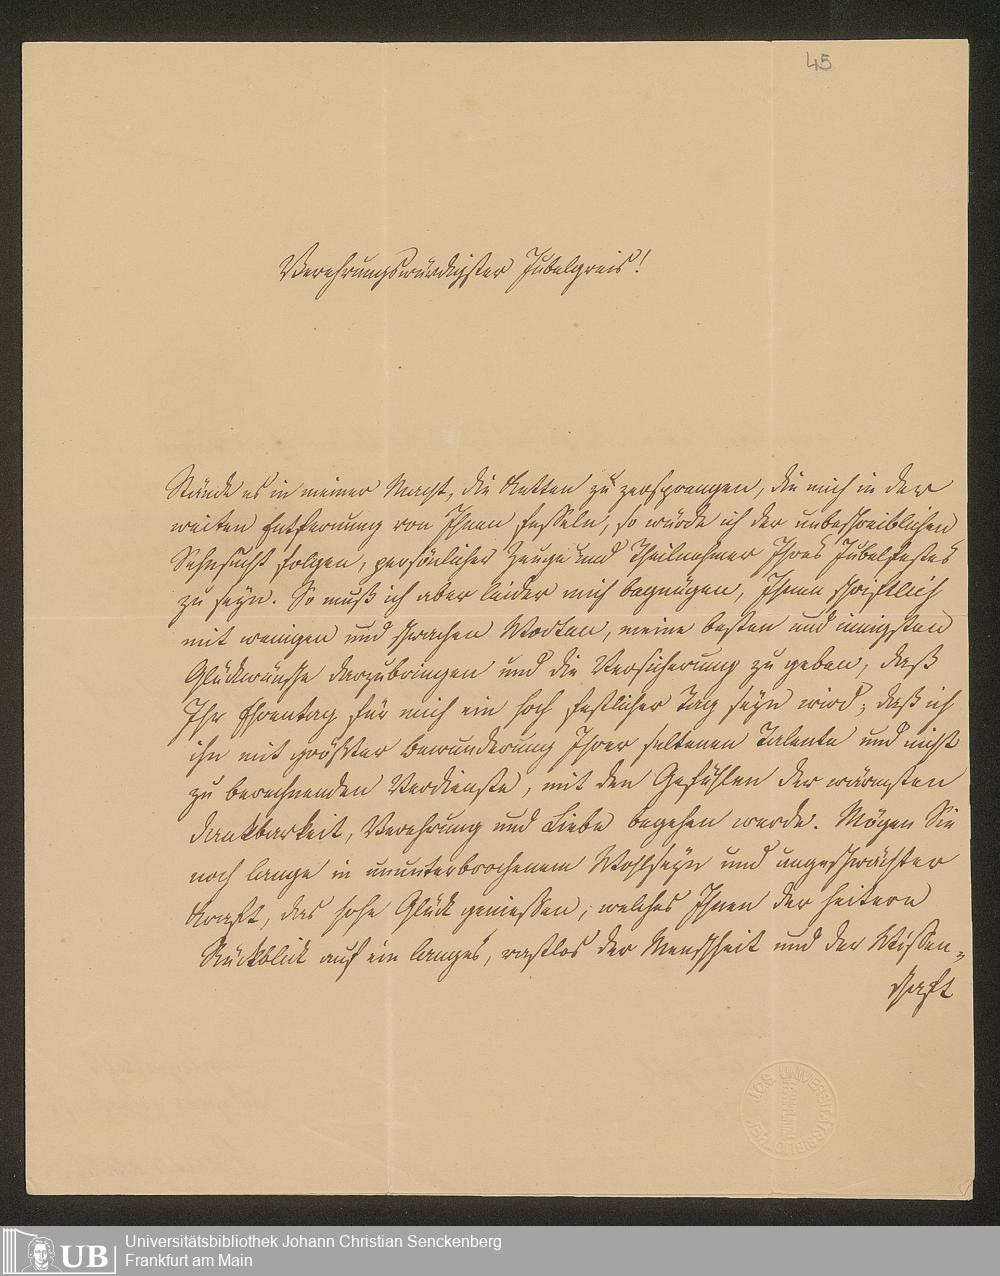 45
Verehrungswürdigster Jubelgreis!
Stände es in meiner Macht, die Ketten zu zersprengen, die mich in der
weiten Entfernung von Ihnen fesseln, so würde ich der unbeschreiblichen
Sehnsucht folgen, persönlicher Zeuge und Theilnehmer Ihres Jubelfestes
zu seyn. So muß ich aber leider mich begnügen, Ihnen schriftlich
mit wenigen und schwachen Worten, meine besten und innigsten
Glückwünsche darzubringen und die Versicherung zu geben, daß
Ihr Ehrentag für mich ein hoch festlicher Tag seyn wird; daß ich
ihn mit größter Bewunderung Ihrer seltenen Talente und nicht
zu berechnenden Verdienste, mit den Gefühlen der wärmsten
Dankbarkeit, Verehrung und Liebe begehen werde. Mögen Sie
noch lange in ununterbrochenem Wohlseyn und ungeschwächter
Kraft, das hohe Glück genießen, welches Ihnen der heitere
Rückblick auf ein langes, rastlos der Menschheit und der Wissen-
schaft
J.C.S. UNIVERSITÄTSBIBLIOTHEK
UB
Universitätsbibliothek Johann Christian Senckenberg
Frankfurt am Main